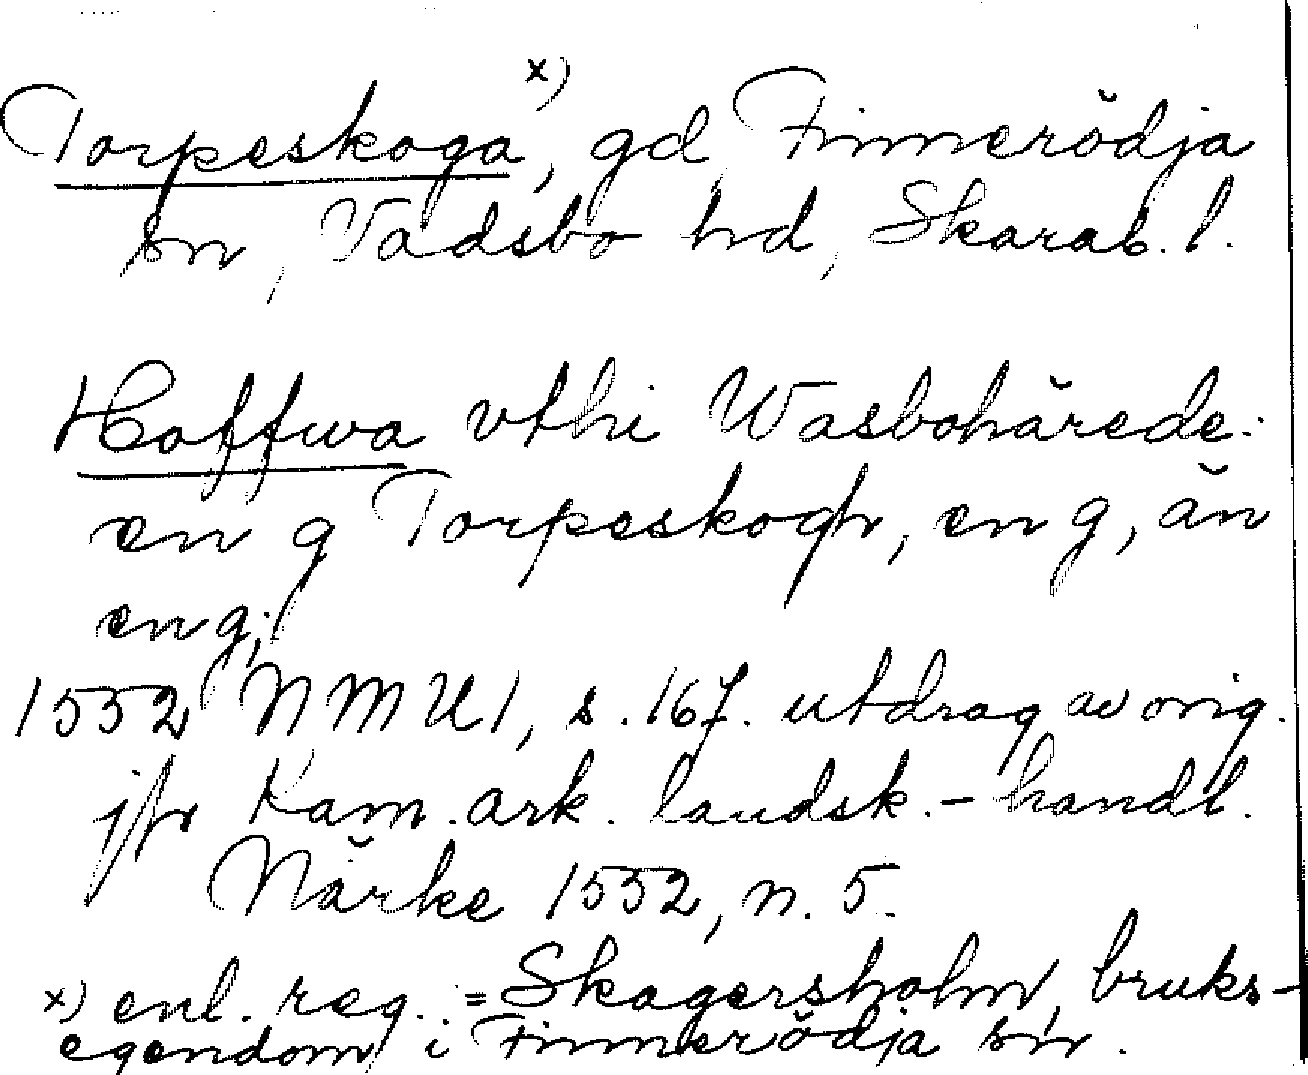 Torpeskoga x), gd, Finnerödja
sn, Vadsbo hd, Skarab. l.
Hoffwa vthi Wasbohärede:
en g Torpeskogh, en g, än
en g;
1552 NMU 1, s. 167. utdrag av orig.
jfr Kam. ark. landsk.-handl.
Närke 1552, n. 5.
x) enl. reg. = Skagersholm, bruks-
egendom i Finnerödja sn.